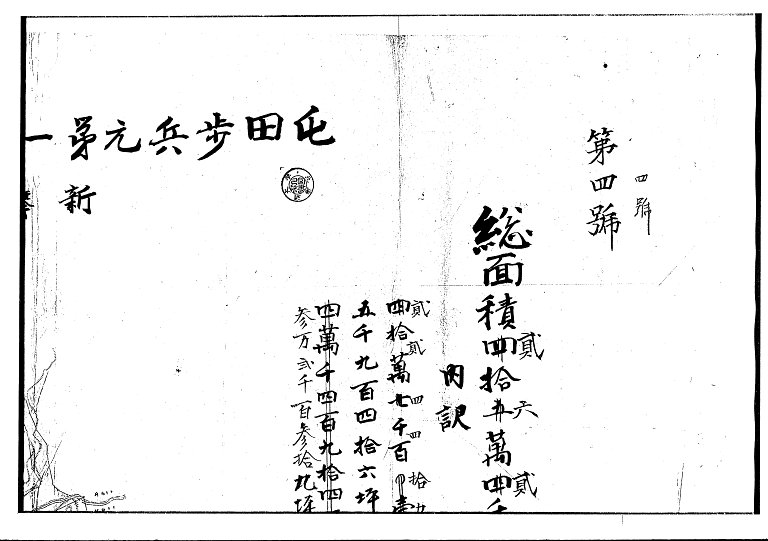 屯田歩兵元第一
新
第四號
四號
総面積四拾五萬四千
貳 六 貳
内訳
四拾萬七千百
貳貳四四拾九
五千九百四拾六坪
四萬千四百九拾四
参万弐千百参拾九坪